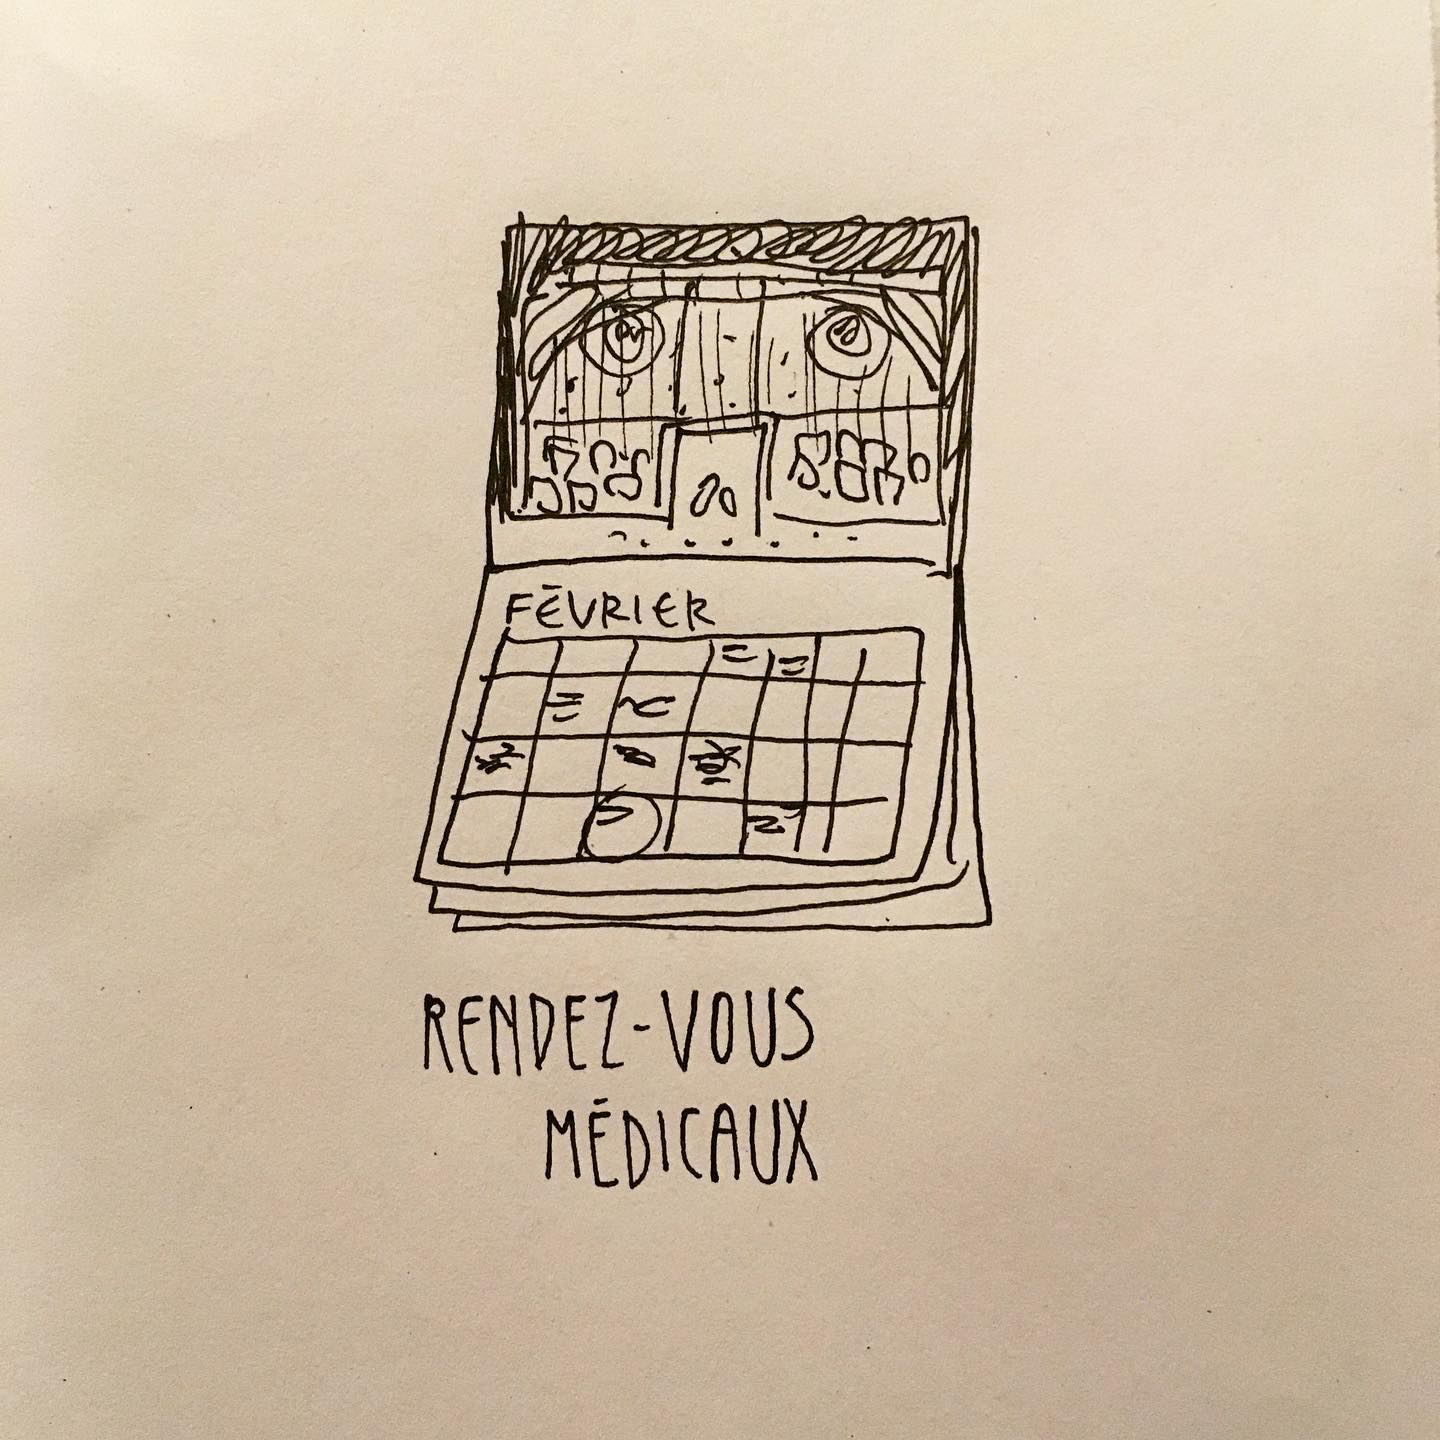 FÉVRIER
RENDEZ-VOUS
MÉDICAUX